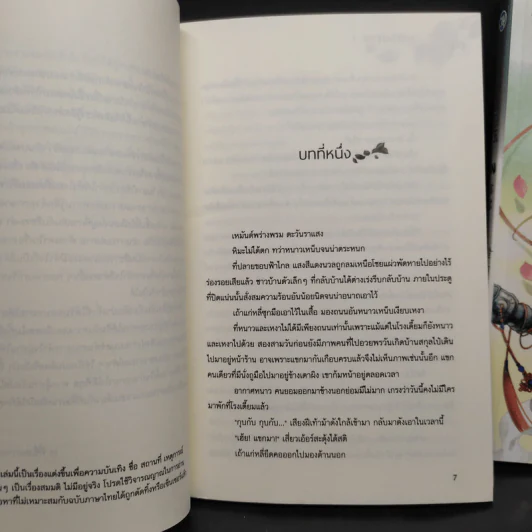 บทที่หนึ่ง
เหมันต์พร่างพรม ตะวันราแสง
หิมะไม่ได้ตก ทว่าหนาวเหน็บจนน่าตระหนก
ที่ปลายขอบฟ้าไกล แสงสีแดงนวลถูกลมเหนือโชยแผ่วพัดหายไปอย่างไร้
ร่องรอยเสียแล้ว ชาวบ้านตัวเล็กๆ ที่กลับบ้านได้ต่างเร่งรีบกลับบ้าน ภายในประตู
ที่ปิดแน่นนั้นสั่งสมความร้อนอันน้อยนิดจนน่าอนาถเอาไว้
เถ้าแก่หลี่ซุกมือเอาไว้ในเสื้อ มองถนนอันหนาวเหน็บเงียบเหงา
ที่หนาวและเหงาไม่ได้มีเพียงถนนเท่านั้นเพราะแม้แต่ในโรงเตี๊ยมก็ยังหนาว
และเหงาไปด้วย สองสามวันก่อนยังมีภาพคนที่ไปอวยพรวันเกิดบ้านสกุลไป๋เดิน
ไปมาอยู่หน้าร้าน อาจเพราะแขกมากันเกือบครบแล้วจึงไม่เห็นภาพเช่นนั้นอีก แขก
คนเดียวที่มีนั่งถูมือไปมาอยู่ข้างเตาผิง เขาก้มหน้าอยู่ตลอดเวลา
อากาศหนาว คนยอมออกมาข้างนอกย่อมมีไม่มาก เกรงว่าวันนี้คงไม่มีใคร
มาพักที่โรงเตี๊ยมแล้ว
"กุบกับ กุบกับ..." เสียงฝีเท้าม้าดังใกล้เข้ามา กลับมาดังเอาในเวลานี้
"เฮ้ย! แขกมา!" เสี่ยวเอ้อร์สะดุ้งได้สติ
เถ้าแก่หลี่ยืดคอออกไปมองด้านนอก
7
เล่มนี้เป็นเรื่องแต่งขึ้นเพื่อความบันเทิง ชื่อ สถานที่ เหตุการณ์
ๆ เป็นเรื่องสมมติ ไม่มีอยู่จริง โปรดใช้วิจารณญาณในการอ่าน